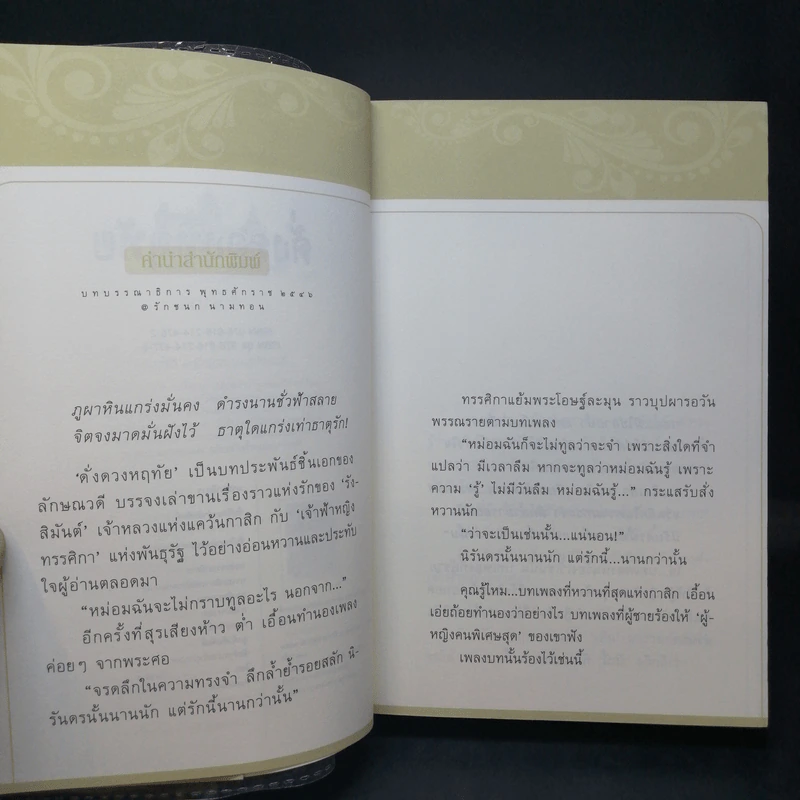 คำนำสำนักพิมพ์
บทบรรณาธิการ พุทธศักราช ๒๕๔๖
@ รักชนก นามทอน
ภูผาหินแกร่งมั่นคง ดำรงนานชั่วฟ้าสลาย
จิตจงมาดมั่นฝังไว้ ธาตุใดแกร่งเท่าธาตุรัก!
‘ดั่งดวงหฤทัย’ เป็นบทประพันธ์ชิ้นเอกของ
ลักษณวดี บรรจงเล่าขานเรื่องราวแห่งรักของ ‘รัง-
สิมันต์’ เจ้าหลวงแห่งแคว้นกาสิก กับ ‘เจ้าฟ้าหญิง
ทรรศิกา’ แห่งพันธุรัฐ ไว้อย่างอ่อนหวานและประทับ
ใจผู้อ่านตลอดมา
“หม่อมฉันจะไม่กราบทูลอะไร นอกจาก...”
อีกครั้งที่สุรเสียงห้าว ต่ำ เอื้อนทำนองเพลง
ค่อยๆ จากพระศอ
“จรดลึกในความทรงจำ ลึกล้ำย้ำรอยสลัก นิ-
รันดรนั้นนานนัก แต่รักนี้นานกว่านั้น”
ทรรศิกาแย้มพระโอษฐ์ละมุน ราวบุปผารอวัน
พรรณรายตามบทเพลง
“หม่อมฉันก็จะไม่ทูลว่าจะจำ เพราะสิ่งใดที่จำ
แปลว่า มีเวลาลืม หากจะทูลว่าหม่อมฉันรู้ เพราะ
ความ ‘รู้’ ไม่มีวันลืม หม่อมฉันรู้...” กระแสรับสั่ง
หวานนัก
“ว่าจะเป็นเช่นนั้น...แน่นอน!”
นิรันดรนั้นนานนัก แต่รักนี้...นานกว่านั้น
คุณรู้ไหม...บทเพลงที่หวานที่สุดแห่งกาสิก เอื้อน
เอ่ยถ้อยทำนองว่าอย่างไร บทเพลงที่ผู้ชายร้องให้ ‘ผู้-
หญิงคนพิเศษสุด’ ของเขาฟัง
เพลงบทนั้นร้องไว้เช่นนี้